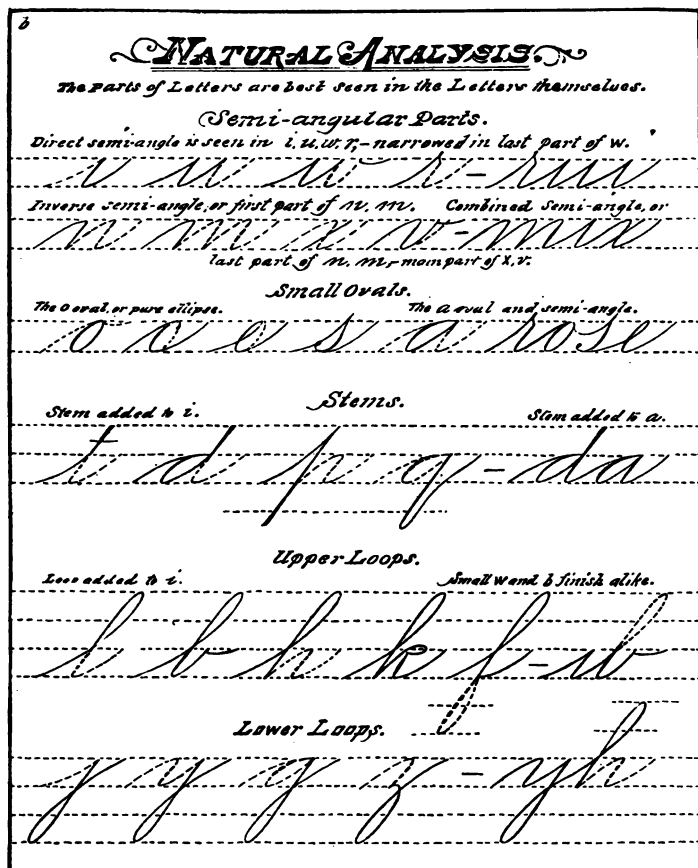 b
NATURAL ANALYSIS.
The Parts of Letters are best seen in the Letters themselves.
Semi-angular Parts.
Direct semi-angle is seen in i, u, w, r,- narrowed in last part of w.
i u w r - rui
Inverse semi-angle, or first part of n, m. Combined semi-angle, or
n m x v - mix
last part of n, m,- main part of x, v.
Small Ovals.
The O oval, or pure ellipse. The a oval and semi-angle.
o c e s a rose
Stems.
Stem added to i. Stem added to a.
t d p q - da
Upper Loops.
Loop added to i. Small w and b finish alike.
l b h k f - w b
Lower Loops.
j y g z - yh